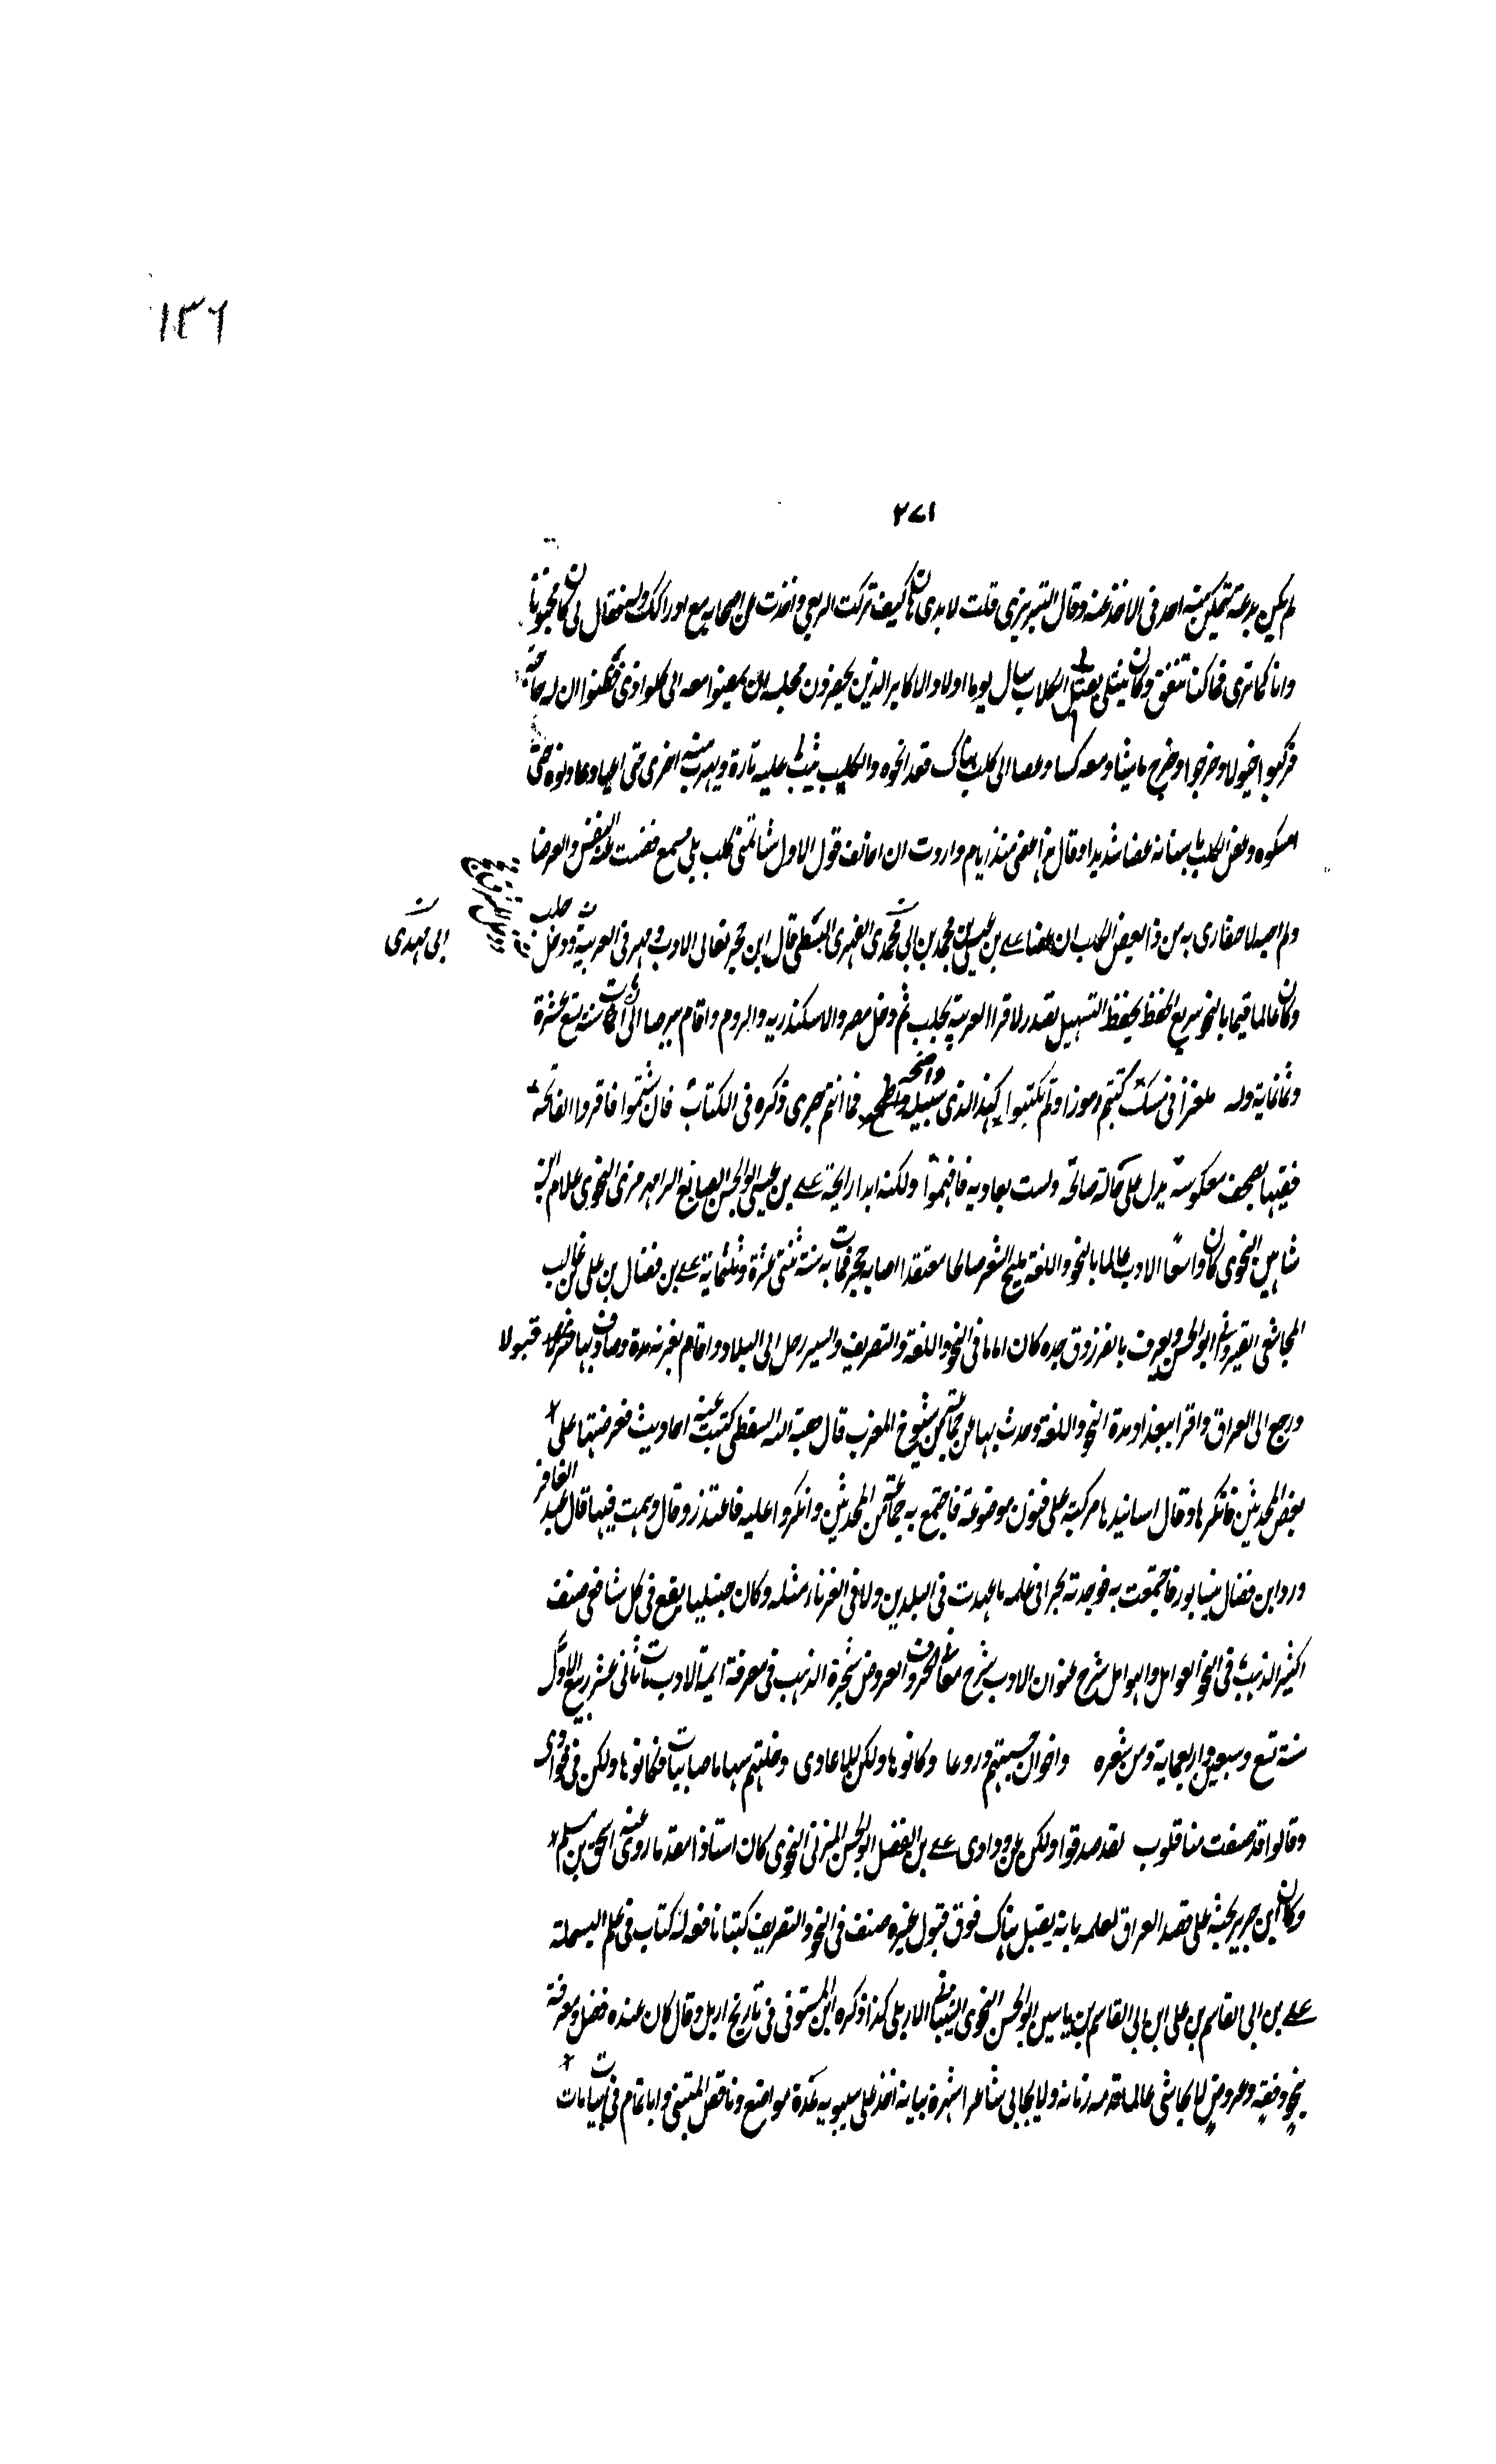 ١٣٦
٢٧١
لم يكن بدعة تمكن منه احد في الاخذ عنه وقال التبريزي قلت لابن برهان كيف تركت الربعي واخذت عن اصحابه مع ادراكك له فقال لي كان مجنونا
وانا كما ترى فما كنا نتفق وكان مبتلى بقتل الكلاب سال يوما اولاد الاكابر الذين يحضرون مجلسه ان يمضوا معه الى كلواذى فظنوا ان له حاجة
فركبوا خيولا وخرجوا وخرج ماشيا ومعه كسا وعصا الى كلب هناك فغدا نحوه والكلب يثب عليه تارة ويهرب منه اخرى حتى اعياه وعاونوه حتى
امسكوه وعض الكلب باسنانه عضا شديدا وقال هذا عضني منذ ايام واردت ان اخالف قول الاول شاتمني كلب بني مسمع فصنت عنه النفس والعرضا
ولم اجبه لاحتقاري به من ذا يعض الكلب ان عضا علي بن عيسى بن محمد بن ابي مهدي الفهري البسطي قال ابن حجر تعانى الادب ومهر في العربية ودخل حلب
ابي مهدي
وكان عالما قيما بالنحو سريع الحفظ يحفظ التسهيل تصدر لاقرا العربية بحلب ثم دخل مصر والاسكندرية والروم واقام ببرصا الى ان مات سنة تسع عشرة
وثمانماية وله ملغزا في نسك كتبتم رموزا ولم تكتبوا كهذا الذي سبيله واضحة فما انتم جرى ذكره في الكتاب فان شئتموا فاقروا الفاتحة
ففيها مصحف معكوسه يدل على حالة صالحة وليست بعادية فافهموا ولكنه ابدا رابحة علي بن عيسى ابو الحسن الصايغ الرامهرمزي النحوي غلام ابن
شاهين النحوي كان واسع الادب عالما بالنحو واللغة مليح الشعر صالحا معتقدا اصابه حجر فمات به سنة ثنتي عشرة وثلثماية علي بن فضال بن علي بن غالب
المجاشعي القيرواني ابو الحسن ويعرف بالفرزدق جده كان اماما في النحو واللغة والتصريف والسير رحل الى البلاد واقام بغزنة مدة وصادف بها قبولا
ورجع الى العراق واقرا ببغداد مدة النحو واللغة وحدث بها عن جماعة من شيوخ المغرب قال هبة الله السقطي كتبت عنه احاديث فعرضتها على
بعض المحدثين فانكرها وقال اسانيدها مركبة على متون موضوعة فاجتمع به جماعة من المحدثين وانكروا عليه فاعتذر وقال وهمت فيها قال عبد الغافر
ورد ابن فضال نيسابور فاجتمعت به فوجدته بحرا في علمه ما عهدت في البلديين ولا في الغرباء مثله وكان حنبليا يقع في كل شافعي صنف
اكسير الذهب في النحو العوامل والهوامل شرح عنوان الادب شرح معاني الحروف العروض شجرة الذهب في معرفة ايمة الادب مات ثاني عشر ربيع الاول
سنة تسع وسبعين واربعماية ومن شعره واخوان حسبتهم دروعا وكانوها ولكن للاعادي وخلتهم سهاما صايبات فكانوها ولكن في فؤادي
وقالوا قد صفت منا قلوب لقد صدقوا ولكن عن ودادي علي بن الفضل ابو الحسن المزني النحوي كان استاذا مقدما روى عنه اسحق بن مسلم
وكان ابن جرير يحثه على قصد العراق لعلمه بانه يقبل هناك فوق قبول غيره صنف في النحو والتصريف كتبا نافعة له كتاب في علم البسملة
علي بن ابي القاسم بن علي ابن ابي القاسم بن ياسين ابو الحسن النحوي الشيباني الاربلي كذا ذكره ابن المستوفي في تاريخ اربل وقال كان عنده فضل ومعرفة
بنحو وفقه وعروض لا يحاشي عالما تقدمه زمانه ولا يحابي شاعرا شهرة بيانه اخذ على سيبويه عدة مواضع وناقض المتنبي وابا تمام في ابيات مات